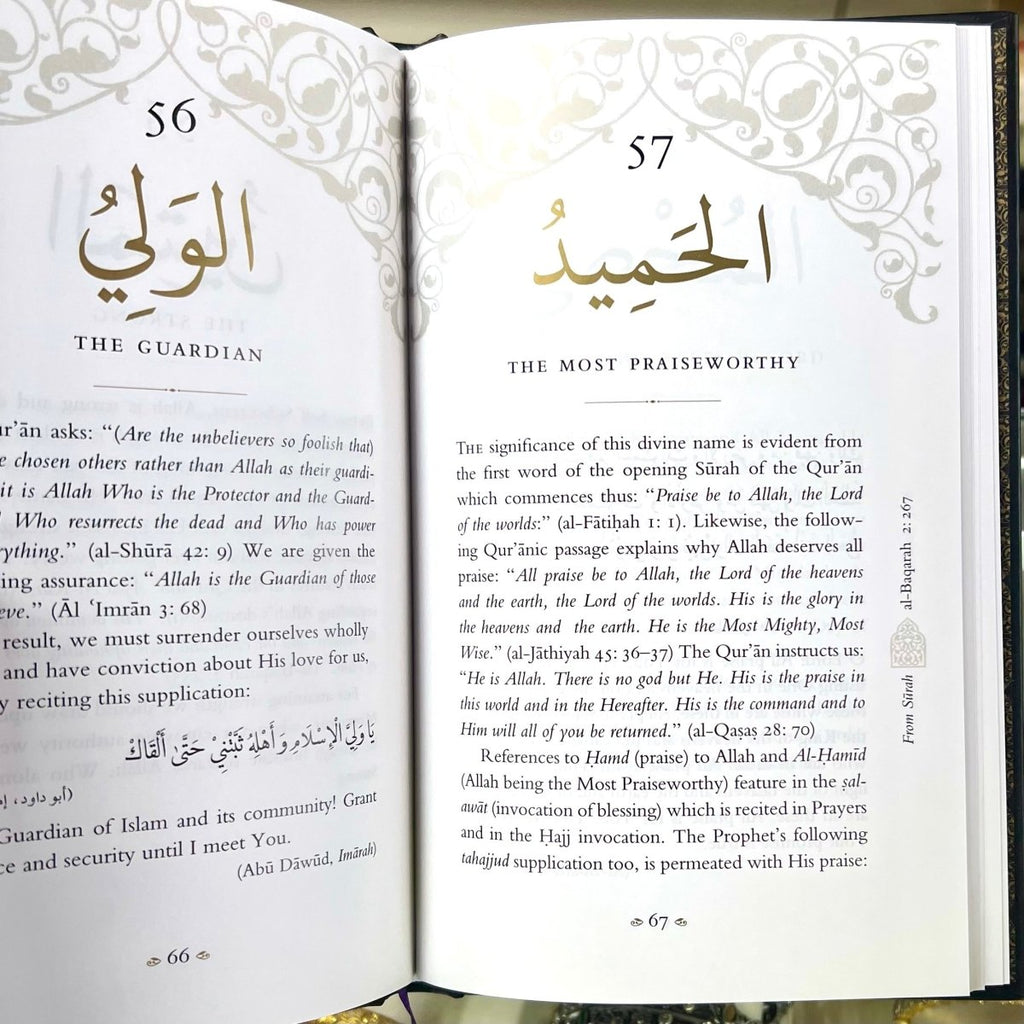 56
الوَلِيُ
THE GUARDIAN
ur’ān asks: “(Are the unbelievers so foolish that)
chosen others rather than Allah as their guardi-
it is Allah Who is the Protector and the Guard-
Who resurrects the dead and Who has power
rything.” (al-Shūrā 42: 9) We are given the
ing assurance: “Allah is the Guardian of those
eve.” (Āl ‘Imrān 3: 68)
result, we must surrender ourselves wholly
and have conviction about His love for us,
y reciting this supplication:
يَا وَلِيَّ الْإِسْلَامِ وَأَهْلِهِ ثَبِّتْنِيْ حَتَّى أَلْقَاكَ
(أبو داود،
Guardian of Islam and its community! Grant
ce and security until I meet You.
(Abū Dāwūd, Imārah)
66
57
الحَمِيدُ
THE MOST PRAISEWORTHY
THE significance of this divine name is evident from
the first word of the opening Sūrah of the Qur’ān
which commences thus: “Praise be to Allah, the Lord
of the worlds:” (al-Fātiḥah 1: 1). Likewise, the follow-
ing Qur’ānic passage explains why Allah deserves all
praise: “All praise be to Allah, the Lord of the heavens
and the earth, the Lord of the worlds. His is the glory in
the heavens and the earth. He is the Most Mighty, Most
Wise.” (al-Jāthiyah 45: 36–37) The Qur’ān instructs us:
“He is Allah. There is no god but He. His is the praise in
this world and in the Hereafter. His is the command and to
Him will all of you be returned.” (al-Qaṣaṣ 28: 70)
References to Ḥamd (praise) to Allah and Al-Ḥamīd
(Allah being the Most Praiseworthy) feature in the ṣal-
awāt (invocation of blessing) which is recited in Prayers
and in the Ḥajj invocation. The Prophet’s following
tahajjud supplication too, is permeated with His praise:
67
From Sūrah al-Baqarah 2: 267